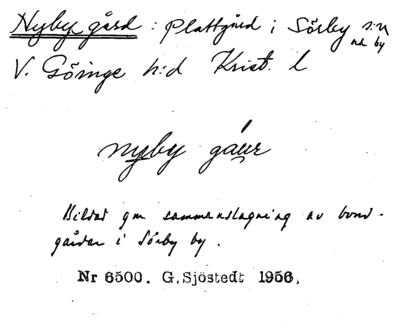 Nyby gård : Plattgård i Sörby s:n
och by
V. Göinge h:d Krist. l
nyby gáur
Bildat gm sammanslagning av bond-
gårdar i Sörby by.
Nr 6500. G. Sjöstedt 1956.